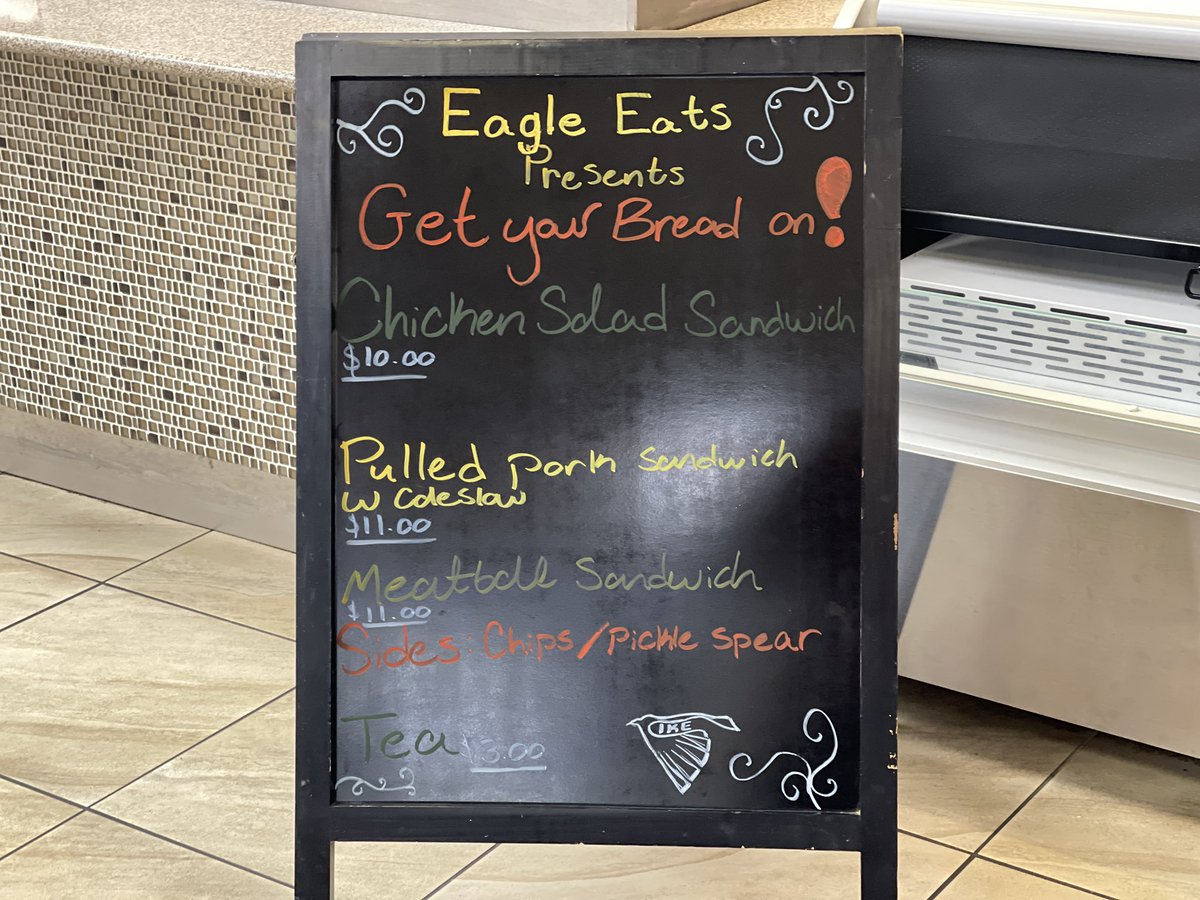 Eagle Eats
Presents
Get your Bread on!
Chicken Salad Sandwich
$10.00
Pulled pork sandwich
w Coleslaw
$11.00
Meatball Sandwich
$11.00
Sides: Chips/Pickle spear
Tea $3.00
IKE